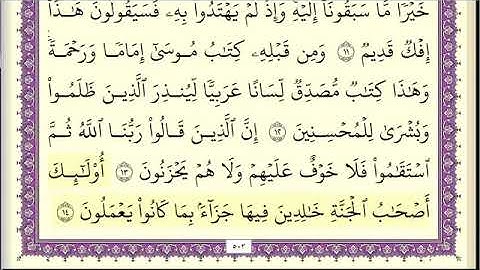 خَيْرًا مَّا سَبَقُونَآ إِلَيْهِ وَإِذْ لَمْ يَهْتَدُوا۟ بِهِۦ فَسَيَقُولُونَ هَـٰذَآ
إِفْكٌ قَدِيمٌ ١١ وَمِن قَبْلِهِۦ كِتَـٰبُ مُوسَىٰٓ إِمَامًا وَرَحْمَةً
وَهَـٰذَا كِتَـٰبٌ مُّصَدِّقٌ لِّسَانًا عَرَبِيًّا لِّيُنذِرَ ٱلَّذِينَ ظَلَمُوا۟
وَبُشْرَىٰ لِلْمُحْسِنِينَ ١٢ إِنَّ ٱلَّذِينَ قَالُوا۟ رَبُّنَا ٱللَّهُ ثُمَّ
ٱسْتَقَـٰمُوا۟ فَلَا خَوْفٌ عَلَيْهِمْ وَلَا هُمْ يَحْزَنُونَ ١٣ أُو۟لَـٰٓئِكَ
أَصْحَـٰبُ ٱلْجَنَّةِ خَـٰلِدِينَ فِيهَا جَزَآءًۢ بِمَا كَانُوا۟ يَعْمَلُونَ ١٤
٥٠٣